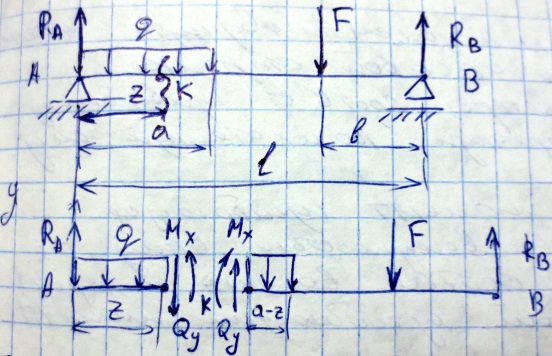 R_A q F R_B
A z K B
a b
l
y
R_A q M_x M_x F R_B
A K B
z Q_y Q_y a-z